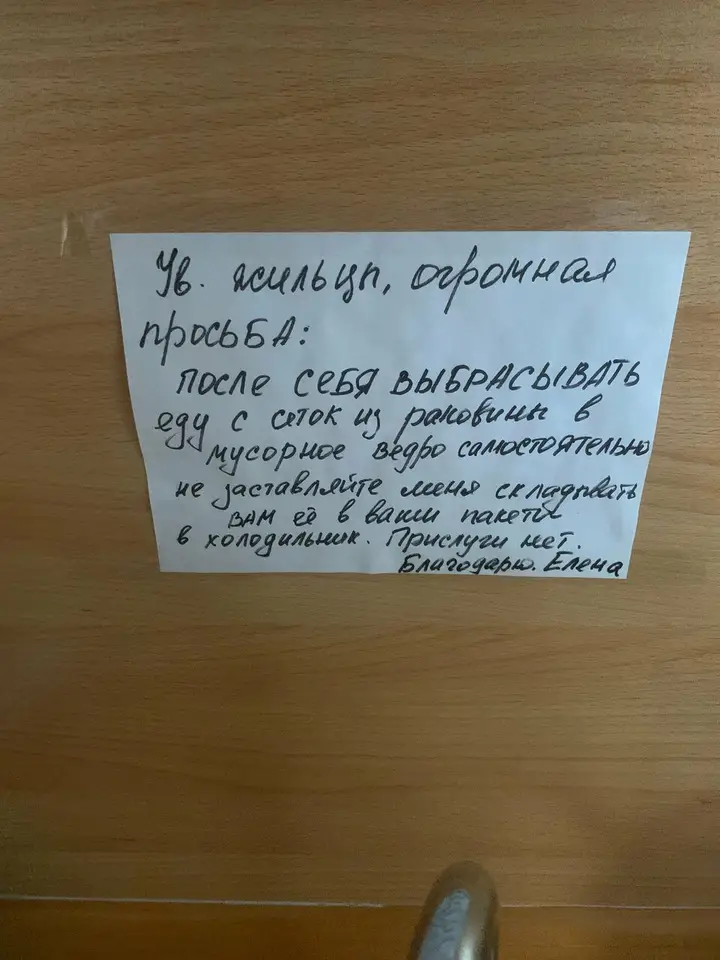 Ув. жильцы, огромная
просьбА:
после СЕБЯ ВЫБРАСЫВАТЬ
еду с сеток из раковины в
мусорное ведро самостоятельно
не заставляйте меня складывать
ВАМ её в ваши пакеты
в холодильник. Прислуги нет.
Благодарю. Елена